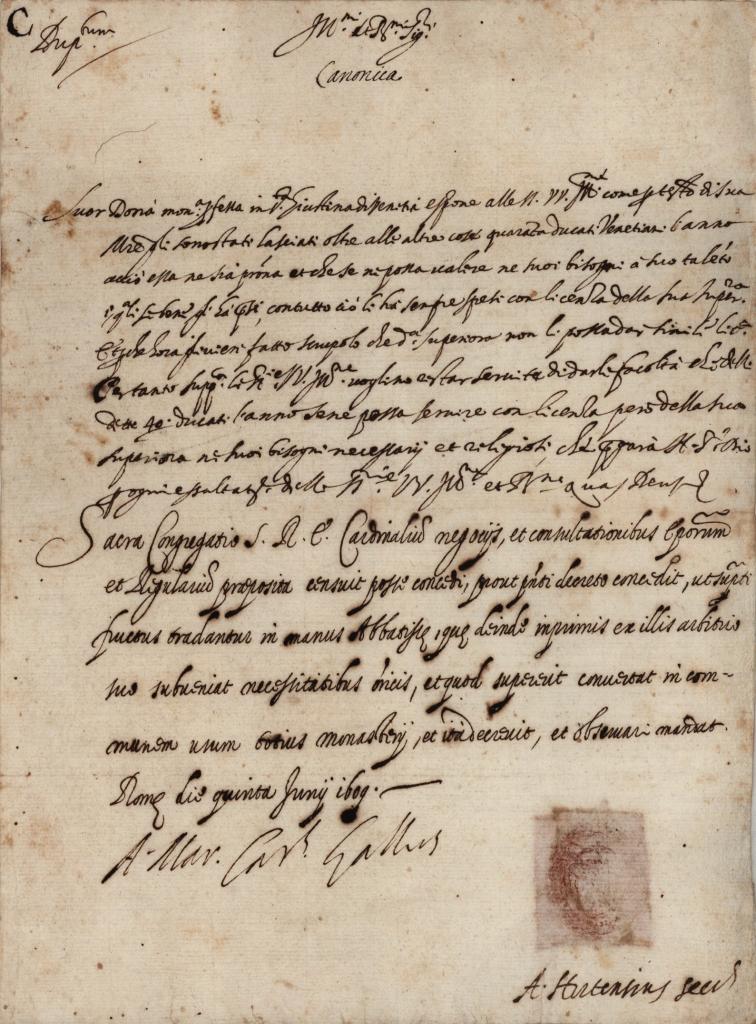 C
Dup.tum
Ill.mi et R.mi Sig.ri
Canonica
Suor Doria mon.a pfessa in S.ta Giustina di Venetia espone alle SS. VV. Ill.me come p testo di sua
Mre gli sono stati lasciati oltre alle altre cose quarata ducati Venetiani l'anno
acciò essa ne sia prona et che se ne possa valere ne suoi bisogni à suo taleto
i qli se bene fi hà qsti, contutto ciò li hà sempre spesi con licenza della sua super.ra
Et pche hora fi vien fatto scrupolo che d.a superiora non li possa dar simil lic.a
Pertanto supp.ca le SS.rie VV. Ill.me voglino restar servite di darle facoltà che delli
detti 40 ducati l'anno se ne possa servire con licenza però della sua
superiora ne suoi bisogni necessarij et religiosi che pgarà N. S.re Dio
p ogni essaltat.ne delle SS.rie VV. Ill.me et R.me Quas Deus
Sacra Congregatio S. R. E. Cardinaliū negocijs, et consultationibus Eporum
et Regulariū præposita censuit posse concedi, prout pnti decreto concedit, ut supti
fructus tradantur in manus Abbatissę, quę deinde inprimis ex illis arbitrio
suo subveniat necessitatibus oricis, et quod supererit convertat in com-
munem usum totius monasterij, et ità decrevit, et observari mandat.
Romę die quinta Junij 1609.
A. Mar. Car.lis Gallus
A. Hortensius secr.s